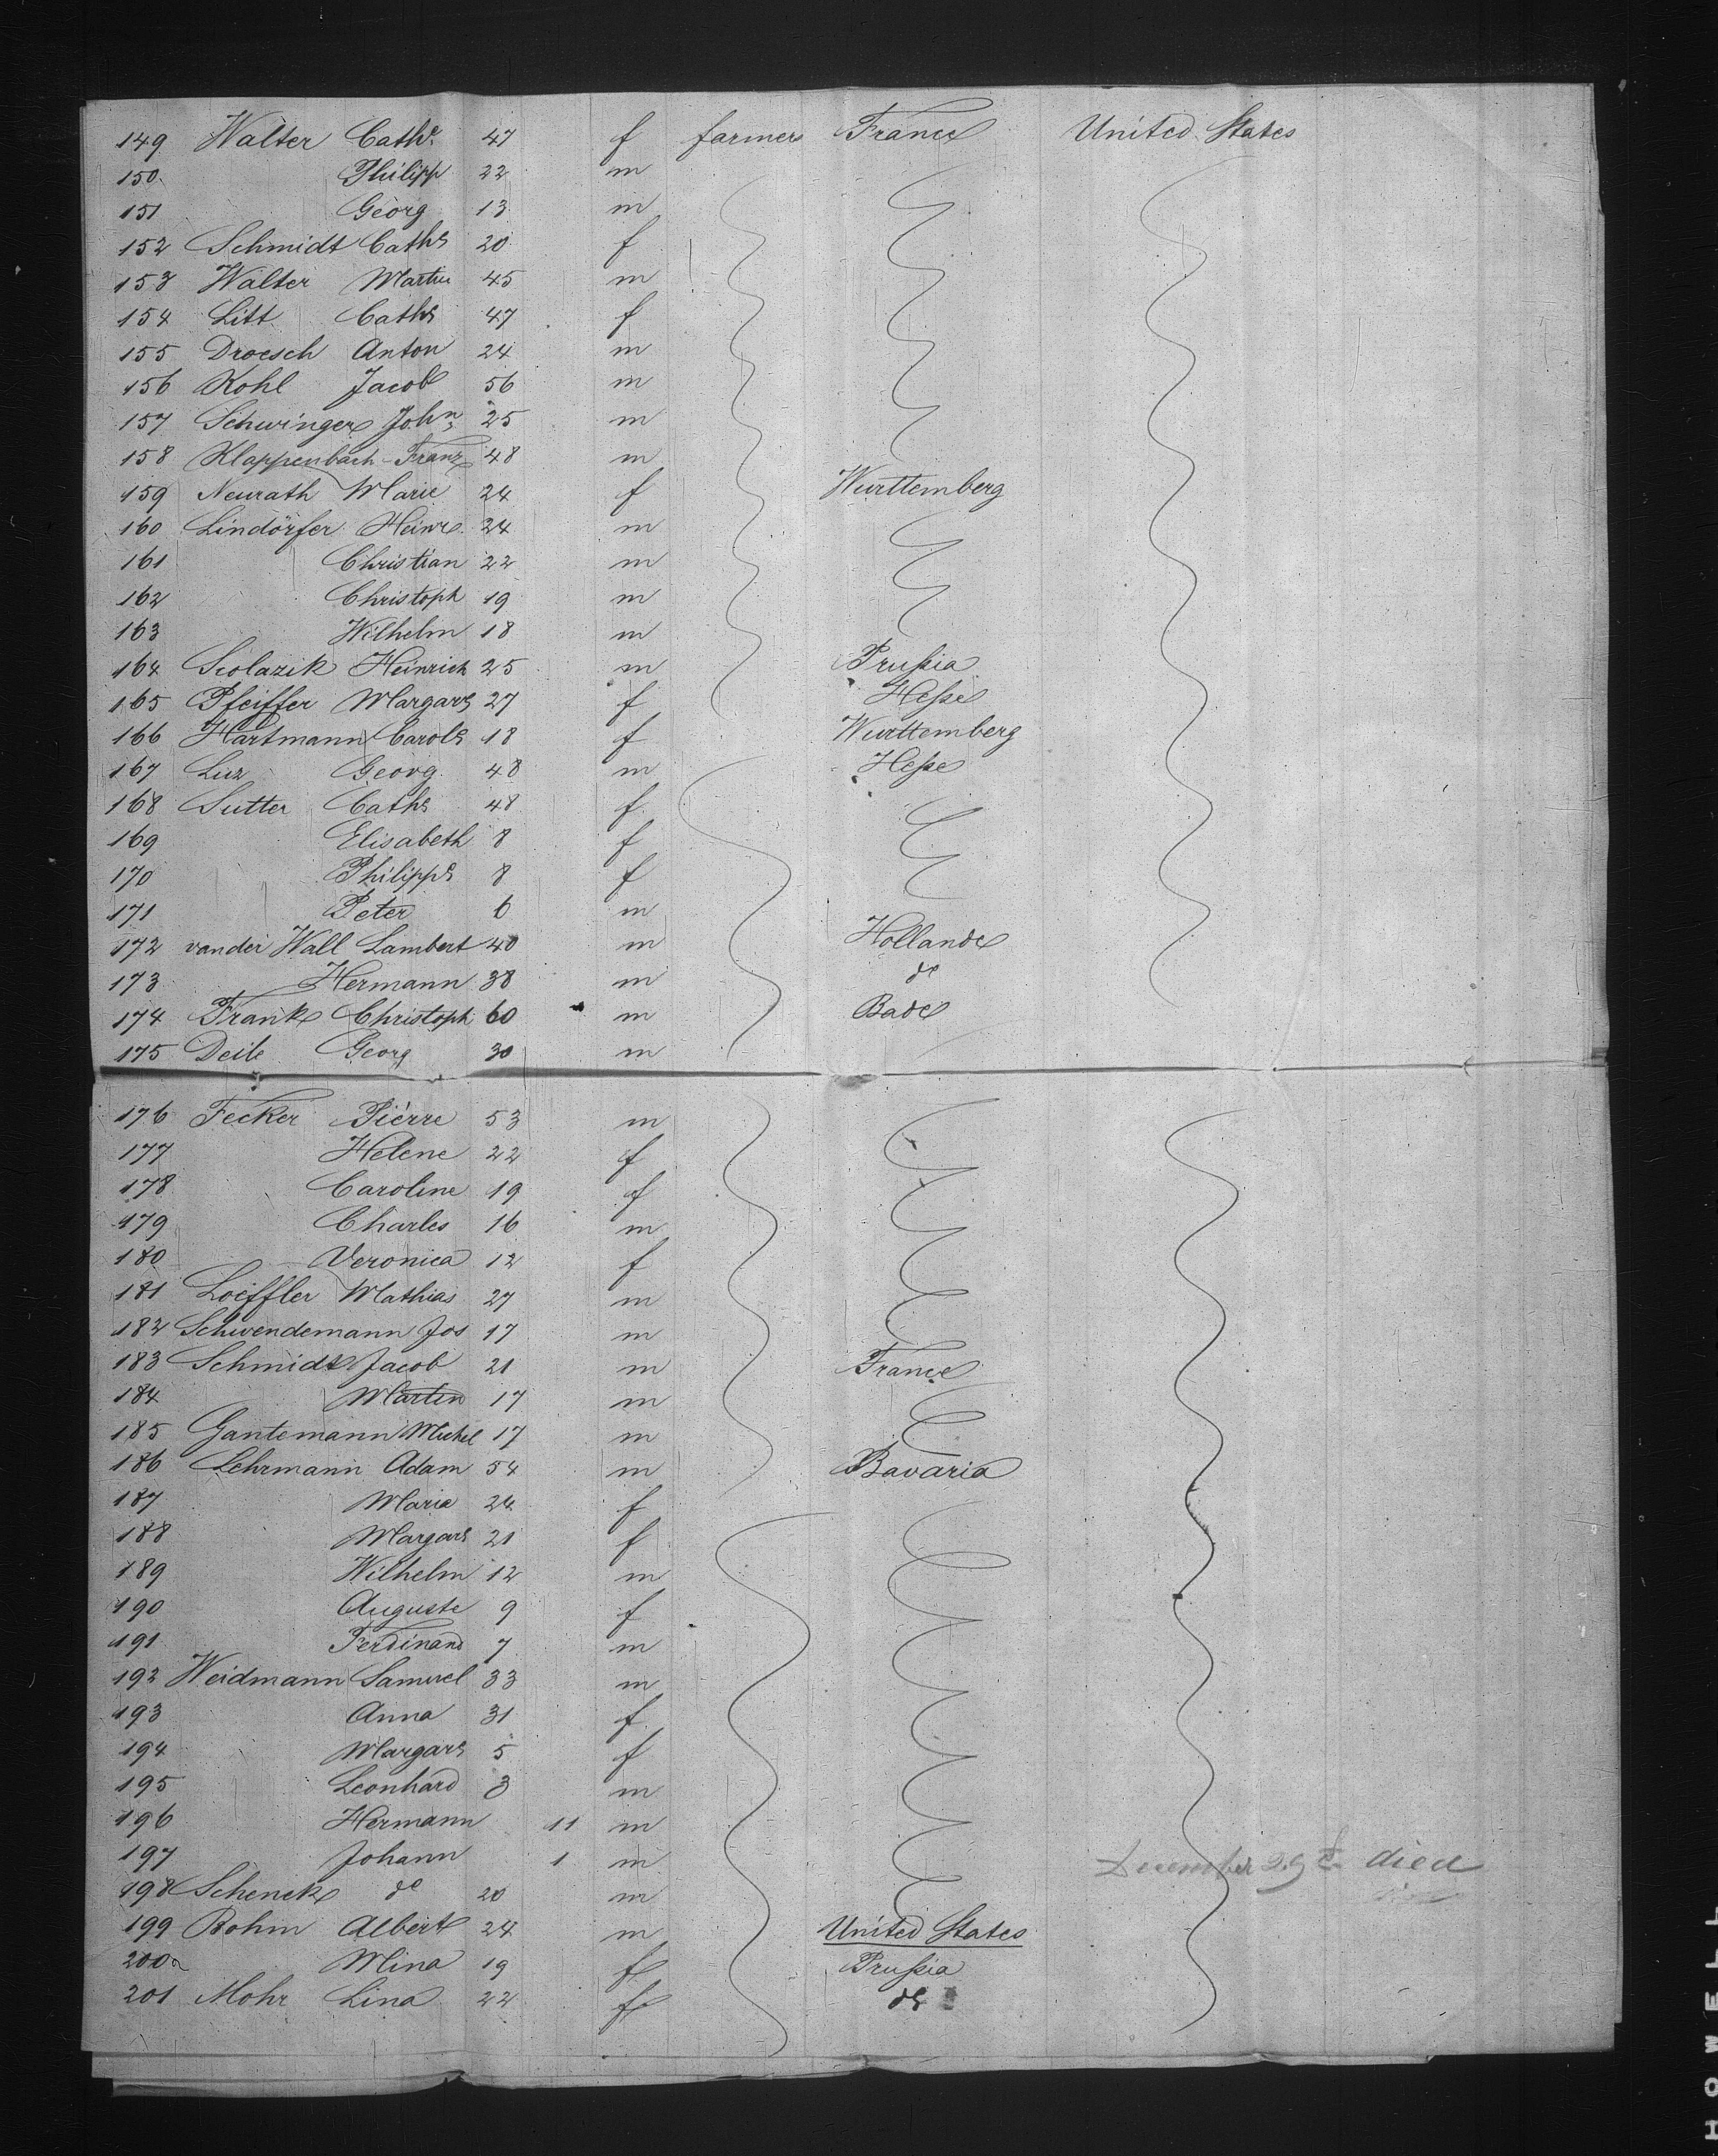 149 Walter Cathe 47 f farmers France United States
150 Philipp 22 m
151 Georg 13 m
152 Schmidt Cathe 20 f
153 Walter Martin 45 m
154 Litt Cathe 47 f
155 Droesch Anton 24 m
156 Kohl Jacob 56 m
157 Schwinger John 25 m
158 Klappenbach Franz 48 m
159 Neurath Marie 24 f Wurttemberg
160 Lindörfer Heinr. 24 m
161 Christian 22 m
162 Christoph 19 m
163 Wilhelm 18 m
164 Scolazik Heinrich 25 m Prussia
165 Pfeiffer Margare 27 f Hesse
166 Hartmann Carole 18 f Wurttemberg
167 Luz Georg 48 m Hesse
168 Sutter Cathe 48 f
169 Elisabeth 8 f
170 Philippe 8 f
171 Peter 6 m
172 vander Wall Lambert 40 m Hollande
173 Hermann 38 m do
174 Frank Christoph 60 m Bade
175 Deile Georg 30 m
176 Fecker Piérre 53 m
177 Helene 22 f
178 Caroline 19 f
179 Charles 16 m
180 Veronica 12 f
181 Loeffler Mathias 27 m
182 Schwendemann Jos 17 m
183 Schmidt Jacob 21 m France
184 Martin 17 m
185 Gantemann Michel 17 m
186 Lehrmann Adam 54 m Bavaria
187 Maria 24 f
188 Margare 21 f
189 Wilhelm 12 m
190 Auguste 9 f
191 Ferdinand 7 m
192 Weidmann Samuel 33 m
193 Anna 31 f
194 Margare 5 f
195 Leonhard 3 m
196 Hermann 11 m
197 Johann 1 m December 29 died
198 Schenck do 20 m
199 Bohm Albert 24 m United States
200 Mina 19 f Prussia
201 Mohr Lina 22 f do
HOWELL